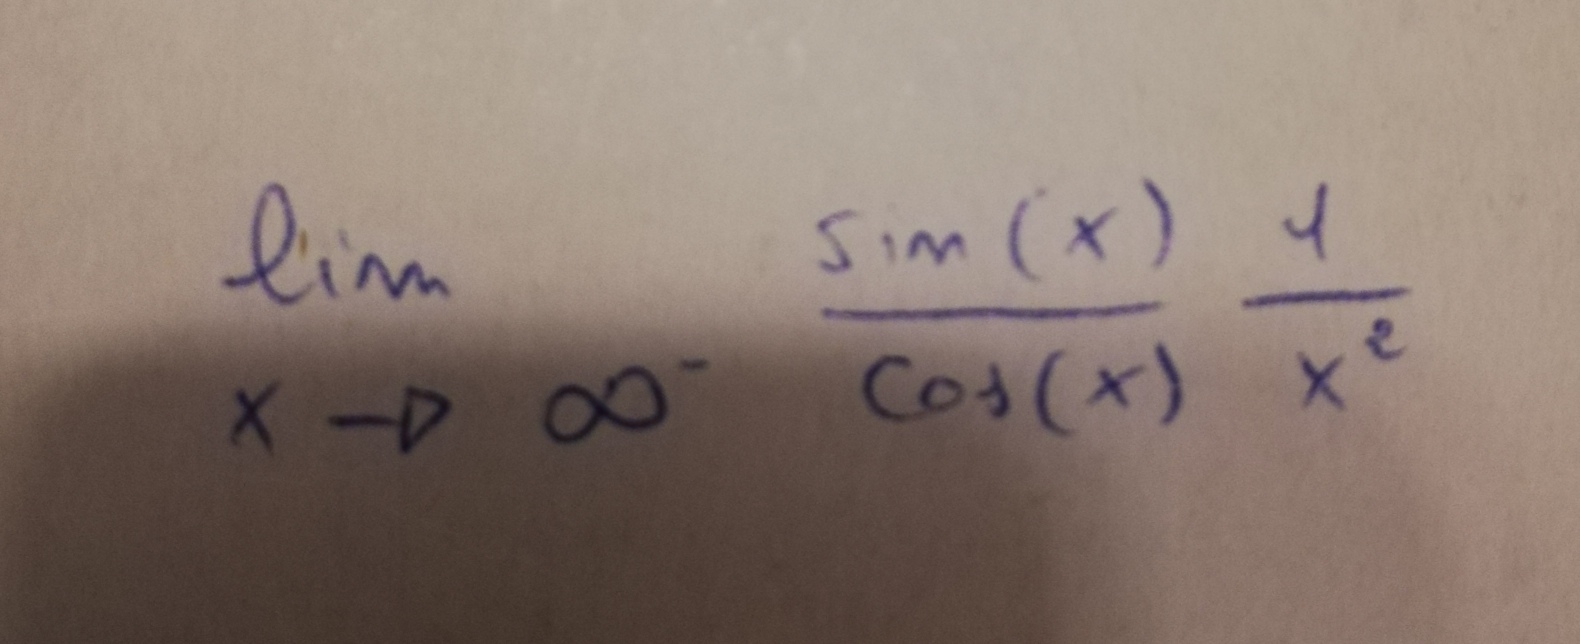 lim x→∞⁻ sin(x)/cos(x) 1/x²